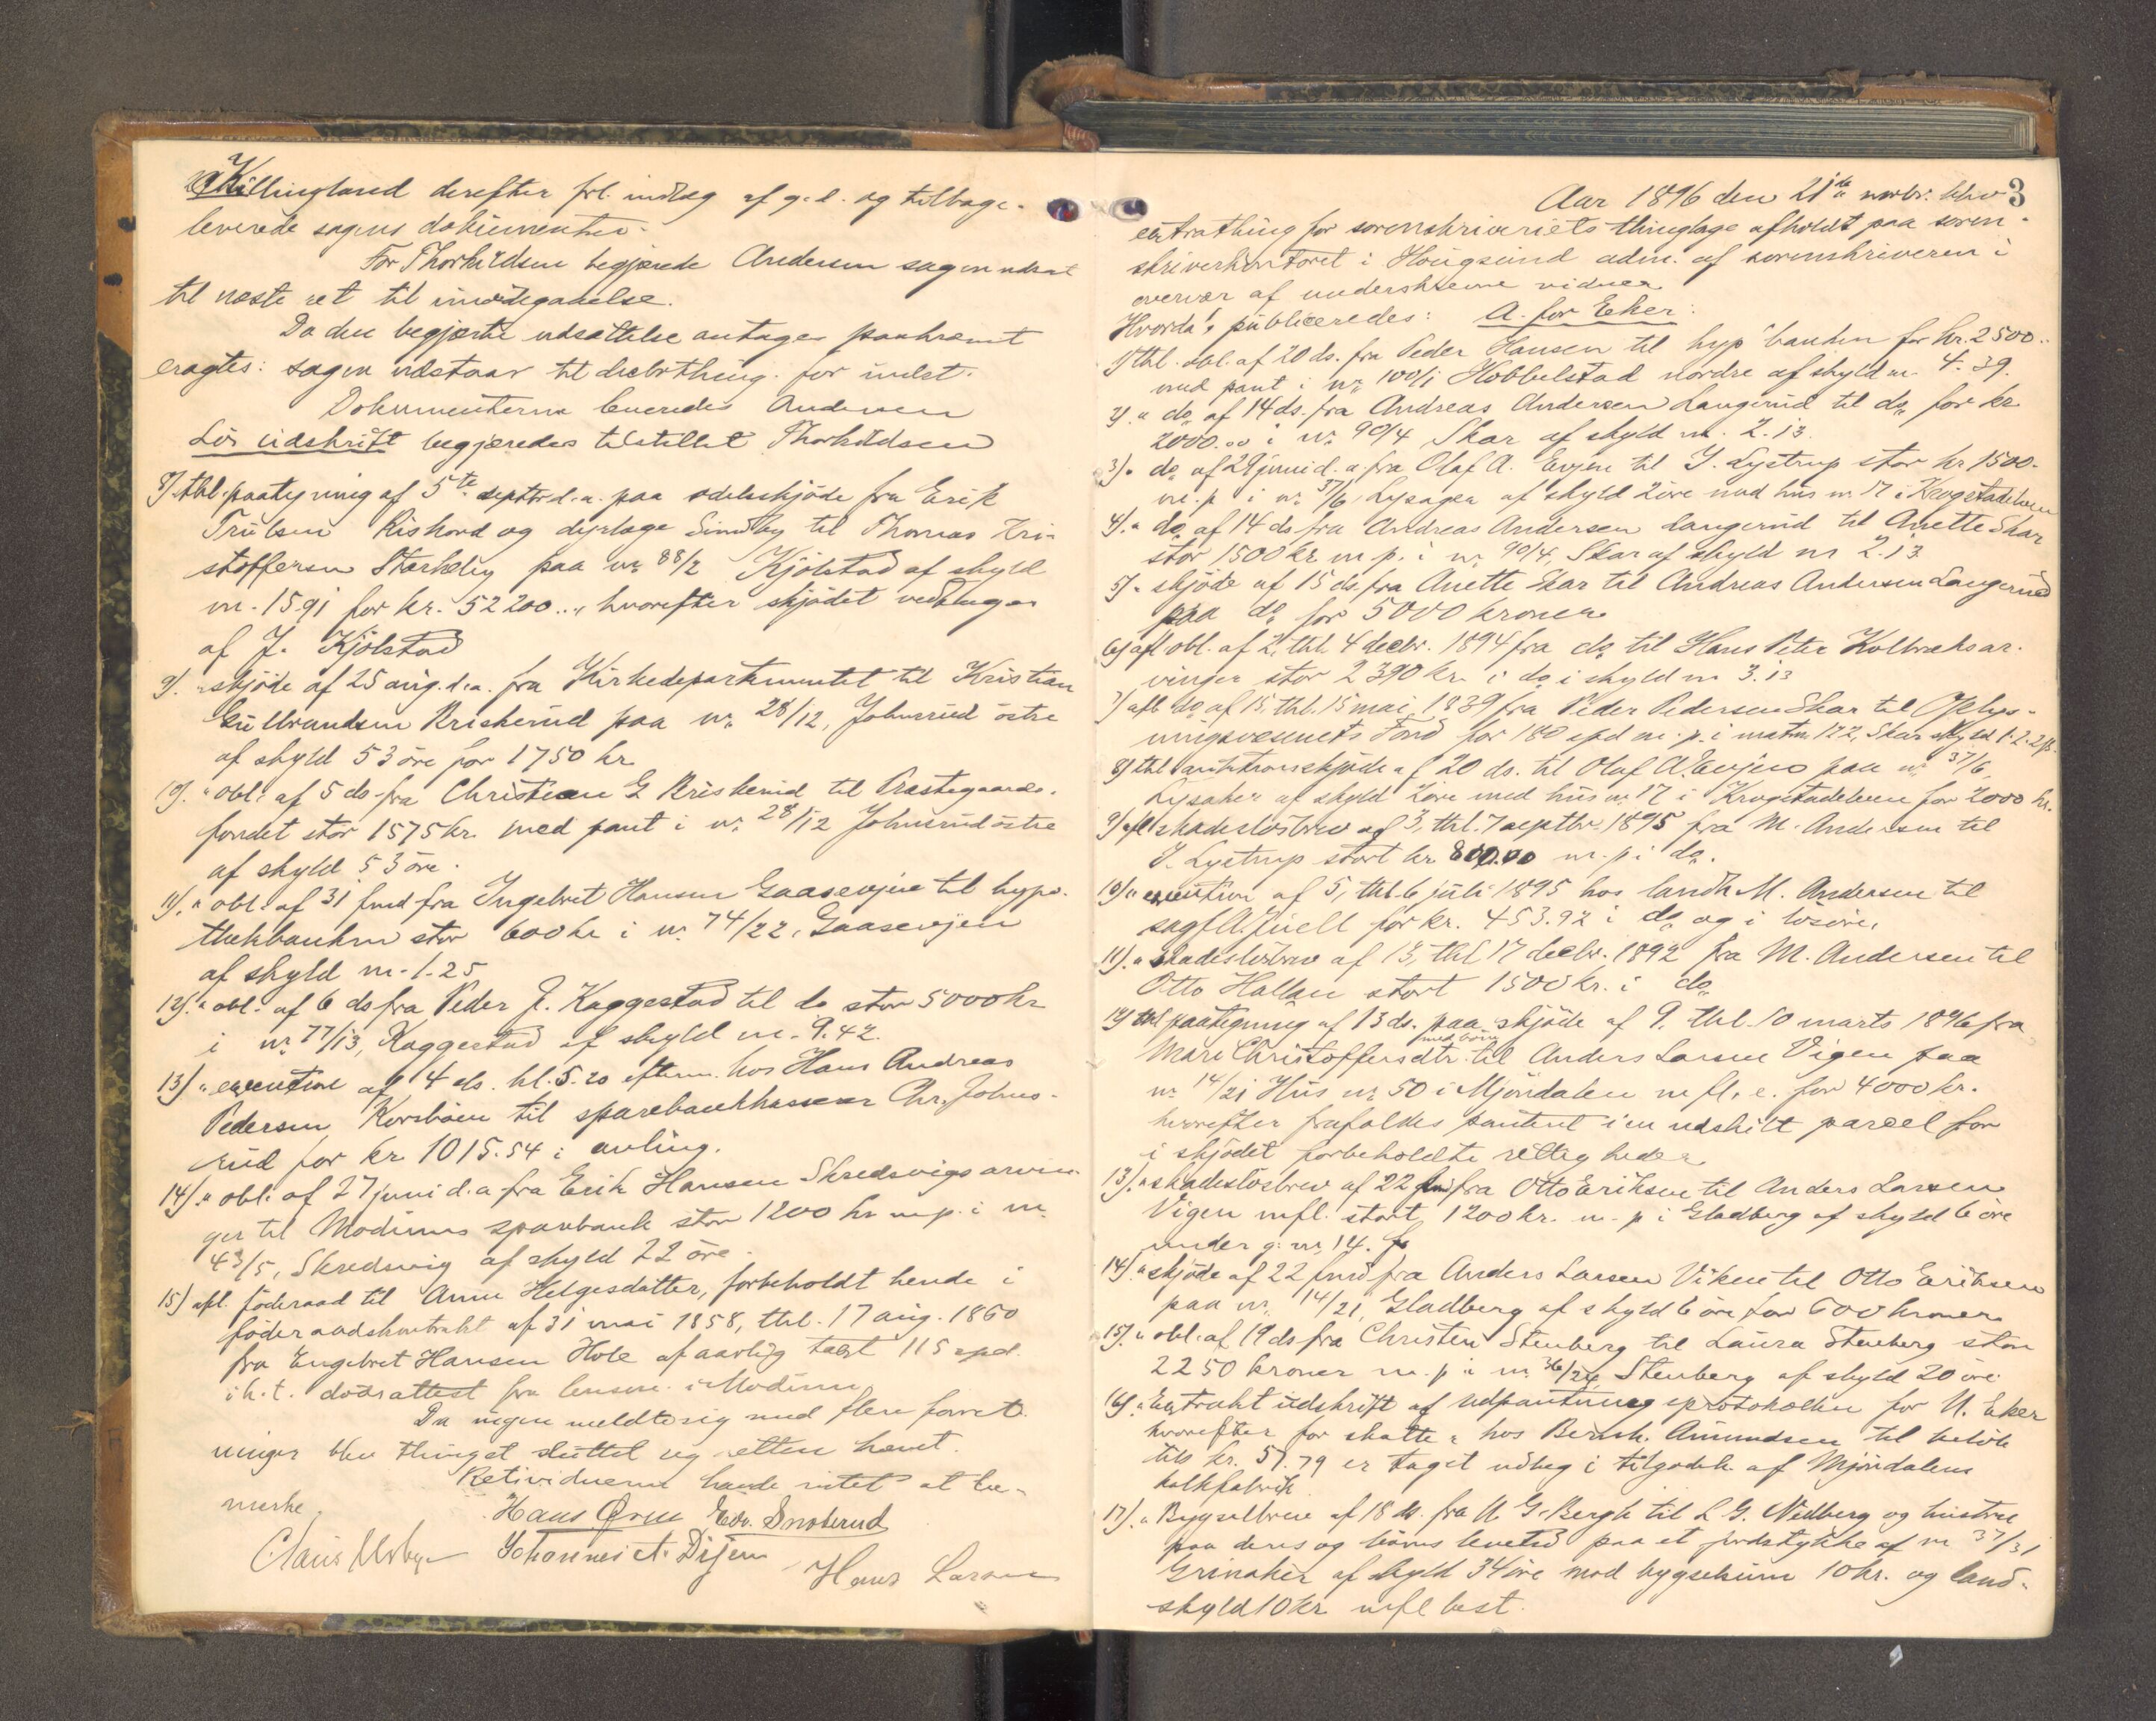 Killingland derefter frl. indlæg af g. d. og tilbage-
leverede sagens dokumenter.
For Thorkildsen begjærede Andersen sagen udsat
til næste ret til imødegaaelse.
Da den begjærte udsættelse antages paakrævet
eragtes: sagen udstaar til decbrthing. for indst.
Dokumenterne leveredes Andersen
Løs udskrift begjæredes tilstillet Thorkildsen
8) thl. paategning af 5te septbr d. a. paa odelsskjøde fra Erik
Trulsen Riskord og dyrlæge Sindby til Thomas Kri-
stoffersen Skarholdy paa nr. 88/2 Kjölstad af skyld
m. 15.91 for kr. 52200..., hvorefter skjödet vedtages
af J. Kjölstad
9). " skjöde af 25 aug. d. a. fra Kirkedepartementet til Kristian
Gulbrandsen Kriskerud paa nr. 28/12, Johnsrud östre
af skyld 53 öre for 1750 kr
10). " obl. af 5 ds fra Christian G Kriskerud til Præstegaards-
fondet stor 1575 kr. med pant i nr. 28/12 Johnsrud östre
af skyld 53 öre.
11). " obl. af 31 f md fra Ingebret Hansen Gaasevjen til hypo-
thekbanken stor 600 kr i nr. 74/22, Gaasevjen
af skyld m. 1.25
12). " obl. af 6 ds fra Peder J. Kaggestad til do stor 5000 kr
i nr. 77/13, Kaggestad af skyld m. 9.42.
13) " execution af 4 ds. kl. 5.20 efterm. hos Hans Andreas
Pedersen Korsböen til sparebankkasserer Chr. Johns-
rud for kr. 1015.54 i avling.
14) " obl. af 27 juni d. a fra Erik Hansen Skredsvigs arvin-
ger til Modums sparebank stor 1200 kr m p. i nr.
43/5, Skredsvig af skyld 22 öre.
15) afl. föderaad til Anne Helgesdatter, forbeholdt hende i
föderaadskontrakt af 31 mai 1858, thl. 17 aug. 1860
fra Engebret Hansen Hole af aarlig taxt 115 spd.
i h. t. dödsattest fra lensm. i Modum.
Da ingen meldte sig med flere forret-
ninger blev thinget sluttet og retten hævet.
Retsvidnerne havde intet at be-
mærke.
Hans Orm Edv. Snoterud
Claus Johannes A. Dijen Hans Larsen
3
Aar 1896 den 21de novbr. blev
extrathing for sorenskriveriets thinglage afholdt paa soren-
skriverkontoret i Hougsund adm. af sorenskriveren i
overvær af underskrevne vidner
Hvorda publiceredes: A. for Eker:
1) thl. obl. af 20 ds. fra Peder Hansen til hyp banken for kr. 2500..
med pant i nr. 100/1 Hobbelstad nordre af skyld m. 4.39.
2). " do. af 14 ds. fra Andreas Andersen Langerud til do. for kr
2000.00 i nr. 90/4 Skar af skyld m. 2.13.
3). " do. af 29 juni d. a fra Olaf A. Evjen til J. Lystrup stor kr. 1500.
m. p i nr. 37/6 Lysager af skyld 2 öre med hus nr. 17 i Krogstadelven
4). " do. af 14 ds fra Andreas Andersen Langerud til Anette Skar
stor 1500 kr m p. i nr. 90/4, Skar af skyld m 2.13
5) " skjöde af 15 ds. fra Anette Skar til Andreas Andersen Langerud
paa do. for 5000 kroner
6) afl obl. af 2. thl. 4 decbr. 1894 fra do. til Hans Peter Kolbræks ar-
vinger stor 2390 kr. i do. i skyld m 3.13
7) afl. do. af 15. thl. 15 mai 1839 fra Peder Pedersen Skar til Oplys-
ningsvæsenets Fond for 180 spd m. p. i matr. nr. 122, Skar skyld 1.2.2 β.
8) thl auktionsskjöde af 20 ds. til Olaf A. Evjen paa nr. 37/6
Lysaker af skyld 2 öre med hus nr 17 i Krogstadelven for 2000 kr.
9) afl skadeslösbrev af 3, thl. 7 septbr 1895 fra M. Andersen til
J. Lystrup stort kr 800.00 m. p i do.
10) " execution af 5, thl. 6 juli 1895 hos landh. M. Andersen til
sagf. A. Juell for kr. 453.92 i do. og i lösöre.
11). " skadeslösbrev af 13, thl 17 decbr. 1892 fra M. Andersen til
Otto Hallan stort 1500 kr. i do.
12) thl paategning af 13 ds. paa skjöde af 9. thl. 10 marts 1896 fra
Mari Christoffersdtr. med börn til Anders Larsen Vigen paa
nr. 14/21 Hus nr. 50 i Mjöndalen m fl. e. for 4000 kr.
hvorefter frafaldes panteret i en udskilt parcel for
i skjödet forbeholdte rettigheder
13). " skadeslösbrev af 22 f md fra Otto Eriksen til Anders Larsen
Vigen mfl. stort 1200 kr. m. p i Gladberg af skyld 6 öre
under g. nr. 14.
14). " skjöde af 22 f md fra Anders Larsen Viken til Otto Eriksen
paa nr. 14/21, Gladberg af skyld 6 öre for 600 kroner
15). " obl. af 19 ds fra Christen Stenberg til Laura Stenberg stor
2250 kroner m. p i nr. 36/24 Stenberg af skyld 20 öre
16). " Extrakt udskrift af udpantningsprotokollen for N. Eker
hvorefter for skatter hos Bernh. Amundsen til belöb
tils kr. 57.79 er taget udlæg i tilgodeh. af Mjöndalens
kalkfabrik
17). " Bygselbrev af 18 ds. fra N G. Bergh til L G. Nedberg og hustru
paa deres og börns levetid paa et jordstykke af nr 37/31
Grinaker af skyld 34 öre mod bygselsum 10 kr. og land-
skyld 10 kr mfl best.